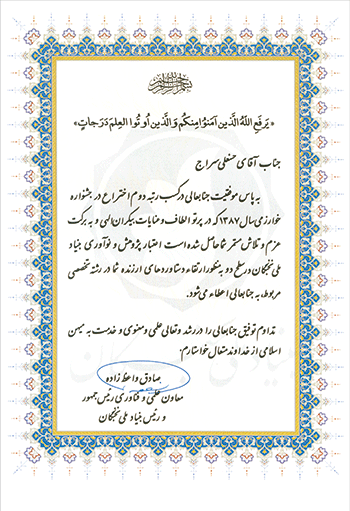 بسم الله الرحمن الرحیم
«یَرفَعِ اللهُ الَّذینَ آمَنُوا مِنکُم وَ الَّذینَ اُوتُوا العِلمَ دَرَجاتٍ»
جناب آقای حسنعلی سراج
به پاس موفقیت جنابعالی در کسب رتبه دوم اختراع در جشنواره
خوارزمی سال ۱۳۸۷ که در پرتو الطاف و عنایات بیکران الهی و به برکت
عزم و تلاش مستمر شما حاصل شده است اعتبار پژوهش و نوآوری بنیاد
ملی نخبگان در سطح دو به منظور ارتقاء دستاوردهای ارزنده شما در رشته تخصصی
مربوط به جنابعالی اعطاء می‌شود.
تداوم توفیق جنابعالی را در رشد و تعالی علمی و معنوی و خدمت به میهن
اسلامی از خداوند متعال خواستارم.
صادق واعظ زاده
معاون علمی و فناوری رئیس جمهور
و رئیس بنیاد ملی نخبگان